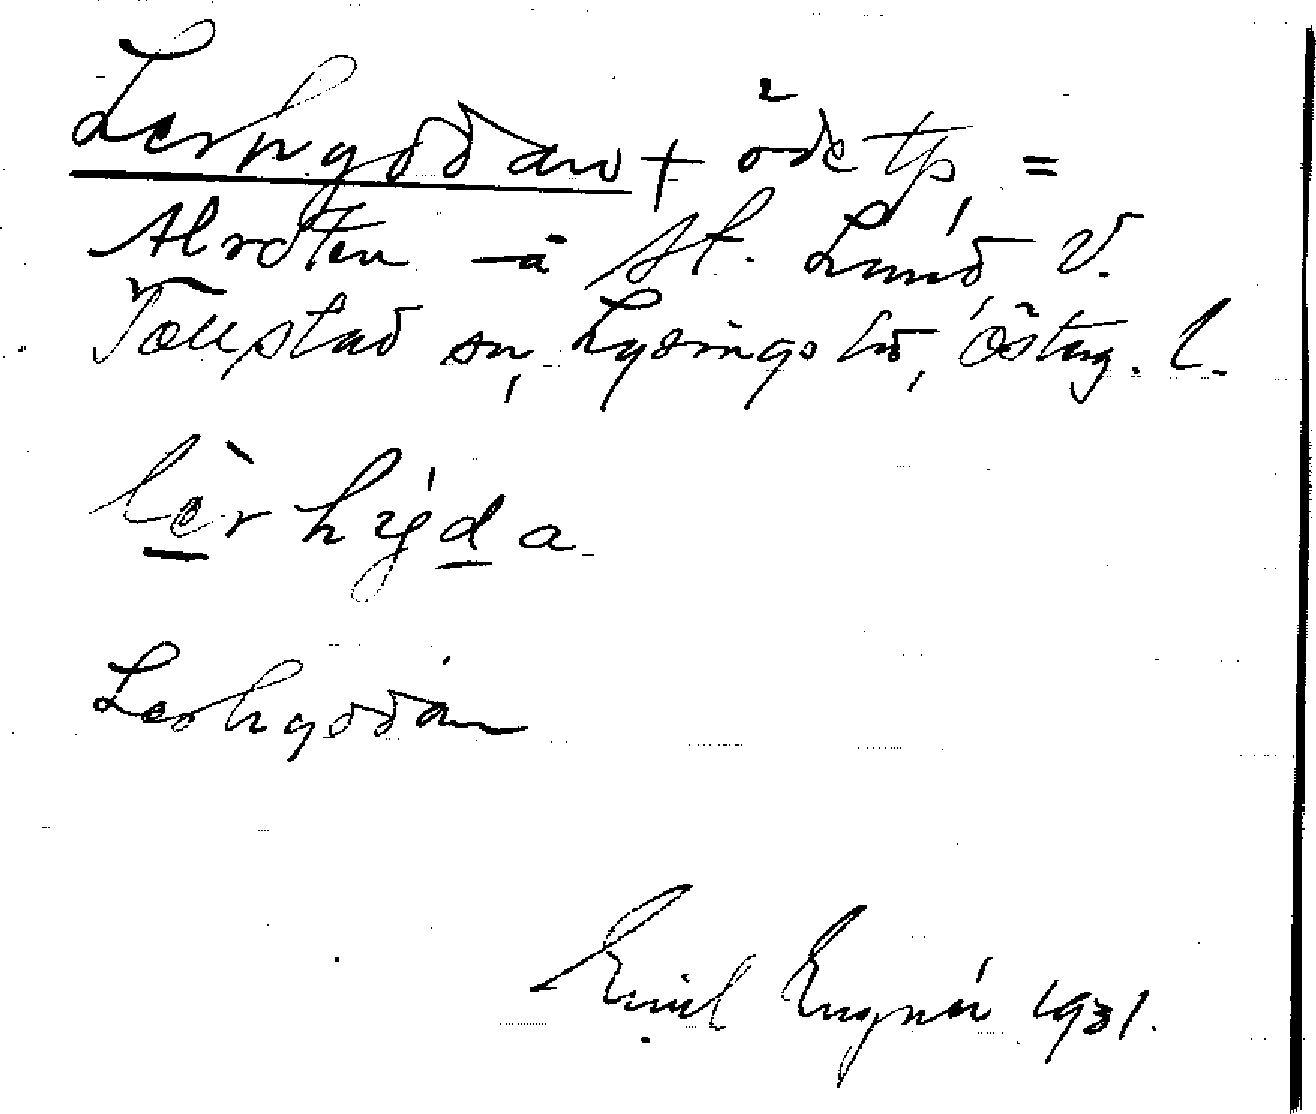 Lerhyddan + öde tp, =
Alvsten - å St. Lund V.
Tollstad sn, Lysings hd, Östug. l.
lèrhyda
Lerhyddan
Emil Lugnér 1931.